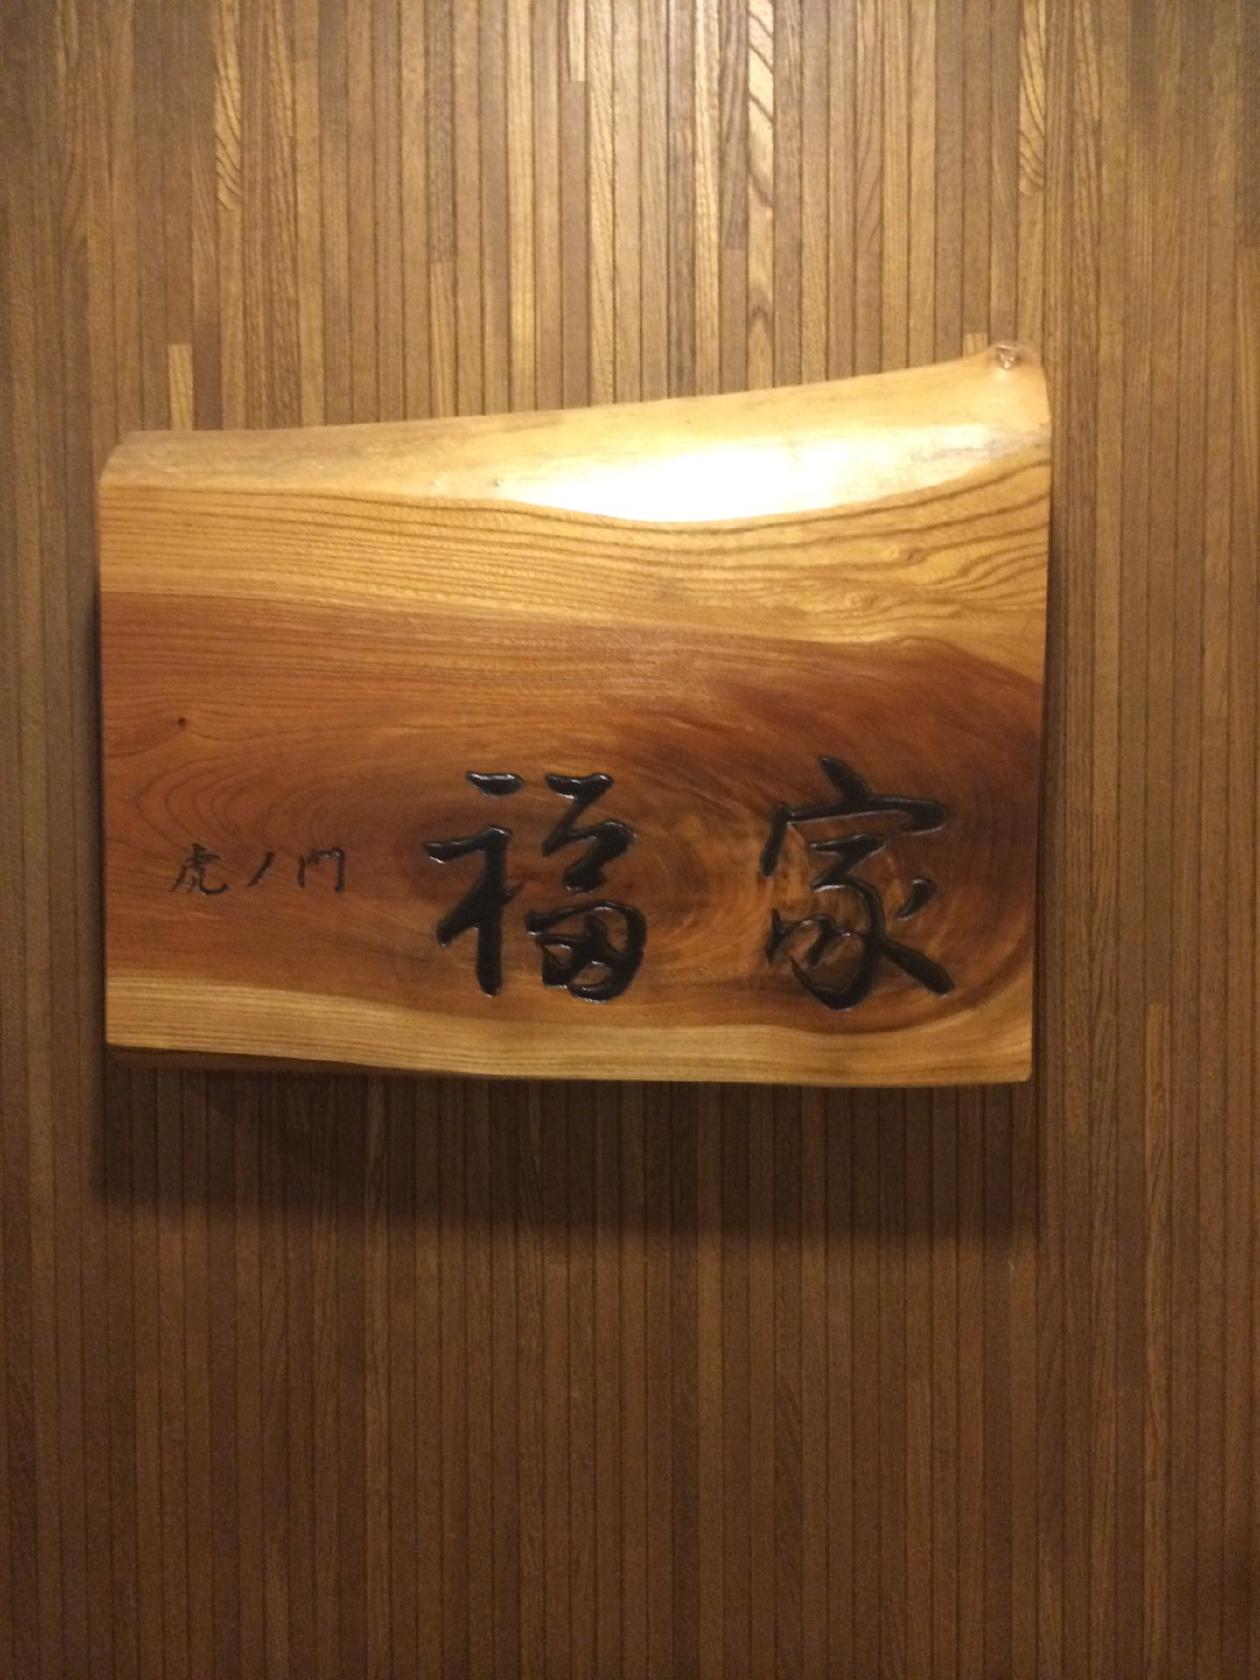 虎ノ門 福家